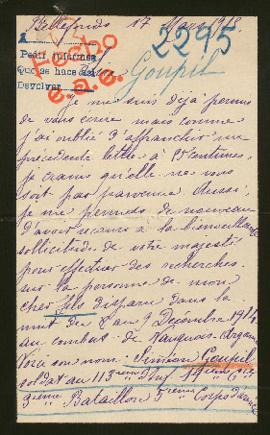 Bellefonds 17 Mars 1918
2295
Pedir informes
Que se hace así
Devolver
Fecho
e.a.e.
Goupil
Je me suis déjà permis
de vous écrire mais comme
j'ai oublié d'affranchir ma
précédente lettre à 25 centimes,
je crains qu'elle ne vous
soit pas parvenue. Aussi,
je me permets de nouveau
d'avoir recours à la bienveillante
sollicitude de votre majesté
pour effectuer des recherches
sur la personne de mon
cher fils disparu dans la
nuit du 8 au 9 Décembre 1914
au combat de Vauquois. Argonne
Voici son nom: Siméon Goupil
soldat au 113ème d'Inf 11ème Cie
3ème Bataillon 5ème Corps d'armée